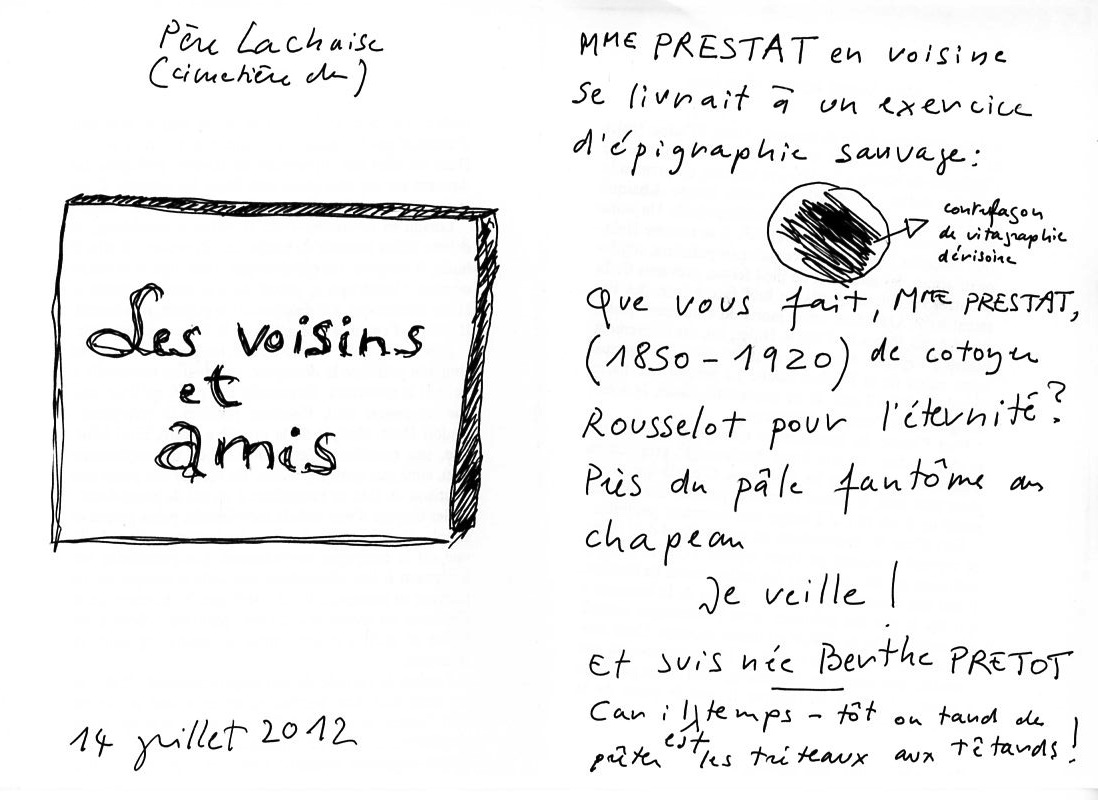 Père Lachaise
(cimetière du)
Les voisins
et
amis
14 juillet 2012
MME PRESTAT en voisine
se livrait à un exercice
d'épigraphie sauvage:
contrefaçon
de vitagraphie
dérisoire
Que vous fait, MME PRESTAT,
(1850-1920) de cotoyer
Rousselot pour l'éternité?
Près du pâle fantôme au
chapeau
Je veille!
Et suis née Berthe PRETOT
Car il est temps - tôt ou tard de
prêter les tréteaux aux têtards!